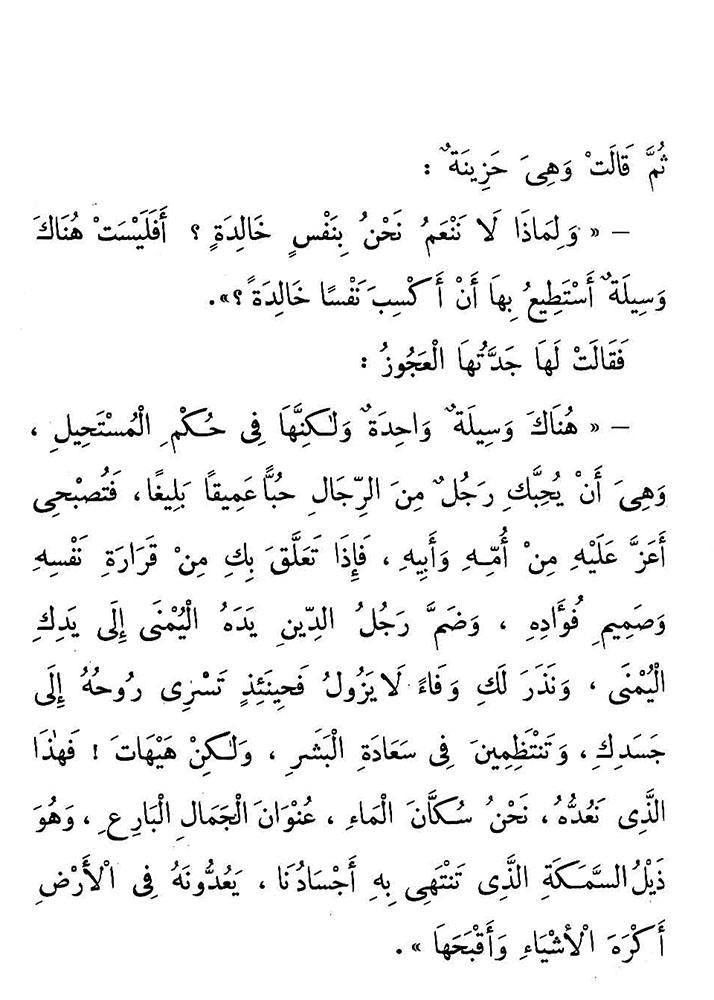 ثُمَّ قَالَتْ وَهِىَ حَزِينَةٌ :
– « وَلِمَاذَا لَا نَنْعَمُ نَحْنُ بِنَفْسٍ خَالِدَةٍ ؟ أَفَلَيْسَتْ هُنَاكَ
وَسِيلَةٌ أَسْتَطِيعُ بِهَا أَنْ أَكْسِبَ نَفْسًا خَالِدَةً ؟» .
فَقَالَتْ لَهَا جَدَّتُهَا الْعَجُوزُ :
– « هُنَاكَ وَسِيلَةٌ وَاحِدَةٌ وَلٰكِنَّهَا فِى حُكْمِ الْمُسْتَحِيلِ ،
وَهِىَ أَنْ يُحِبَّكِ رَجُلٌ مِنَ الرِّجَالِ حُبًّا عَمِيقًا بَلِيغًا ، فَتُصْبِحِى
أَعَزَّ عَلَيْهِ مِنْ أُمِّهِ وَأَبِيهِ ، فَإِذَا تَعَلَّقَ بِكِ مِنْ قَرَارَةِ نَفْسِهِ
وَصَمِيمِ فُؤَادِهِ ، وَضَمَّ رَجُلُ الدِّينِ يَدَهُ الْيُمْنَى إِلَى يَدِكِ
الْيُمْنَى ، وَنَذَرَ لَكِ وَفَاءً لَا يَزُولُ فَحِينَئِذٍ تَسْرِى رُوحُهُ إِلَى
جَسَدِكِ ، وَتَنْتَظِمِينَ فِى سَعَادَةِ الْبَشَرِ ، وَلٰكِنْ هَيْهَاتَ ! فَهٰذَا
الَّذِى نَعُدُّهُ ، نَحْنُ سُكَّانَ الْمَاءِ ، عُنْوَانَ الْجَمَالِ الْبَارِعِ ، وَهُوَ
ذَيْلُ السَّمَكَةِ الَّذِى تَنْتَهِى بِهِ أَجْسَادُنَا ، يَعُدُّونَهُ فِى الْأَرْضِ
أَكْرَهَ الْأَشْيَاءِ وَأَقْبَحَهَا » .